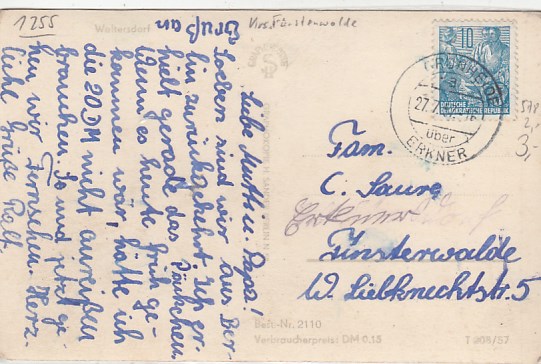 1255
Krs. Fürstenwalde
Woltersdorf
Gruß an
Liebe Mutti u. Papa!
Soeben sind wir aus Ber-
lin zurückgekehrt. Ich er-
hielt gerade das Päckchen.
Wenn es heute früh ge-
kommen wär, hätte ich
die 20 DM nicht anreißen
brauchen. So und jetzt ge-
hen wir Fernsehen. Herz-
liche Grüße Rolf.
10
DEUTSCHE
DEMOKRATISCHE REPUBLIK
27.7.
über
ERKNER
3,-
Fam.
C. Saure
Erkner
Finsterwalde
W. Liebknechtstr. 5
Best-Nr. 2110
Verbraucherpreis: DM 0.15